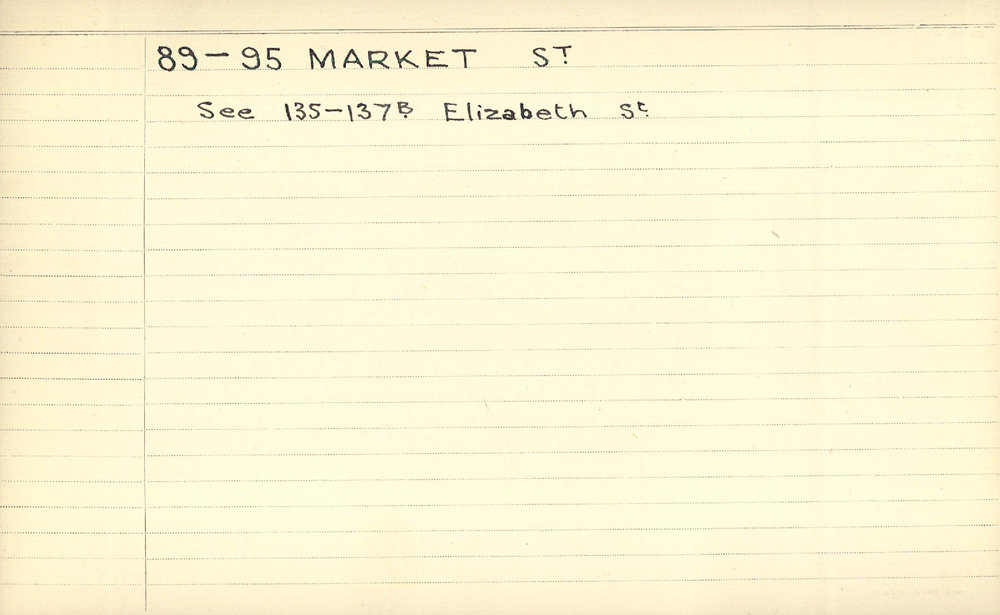 89-95 MARKET ST
See 135-137B Elizabeth St